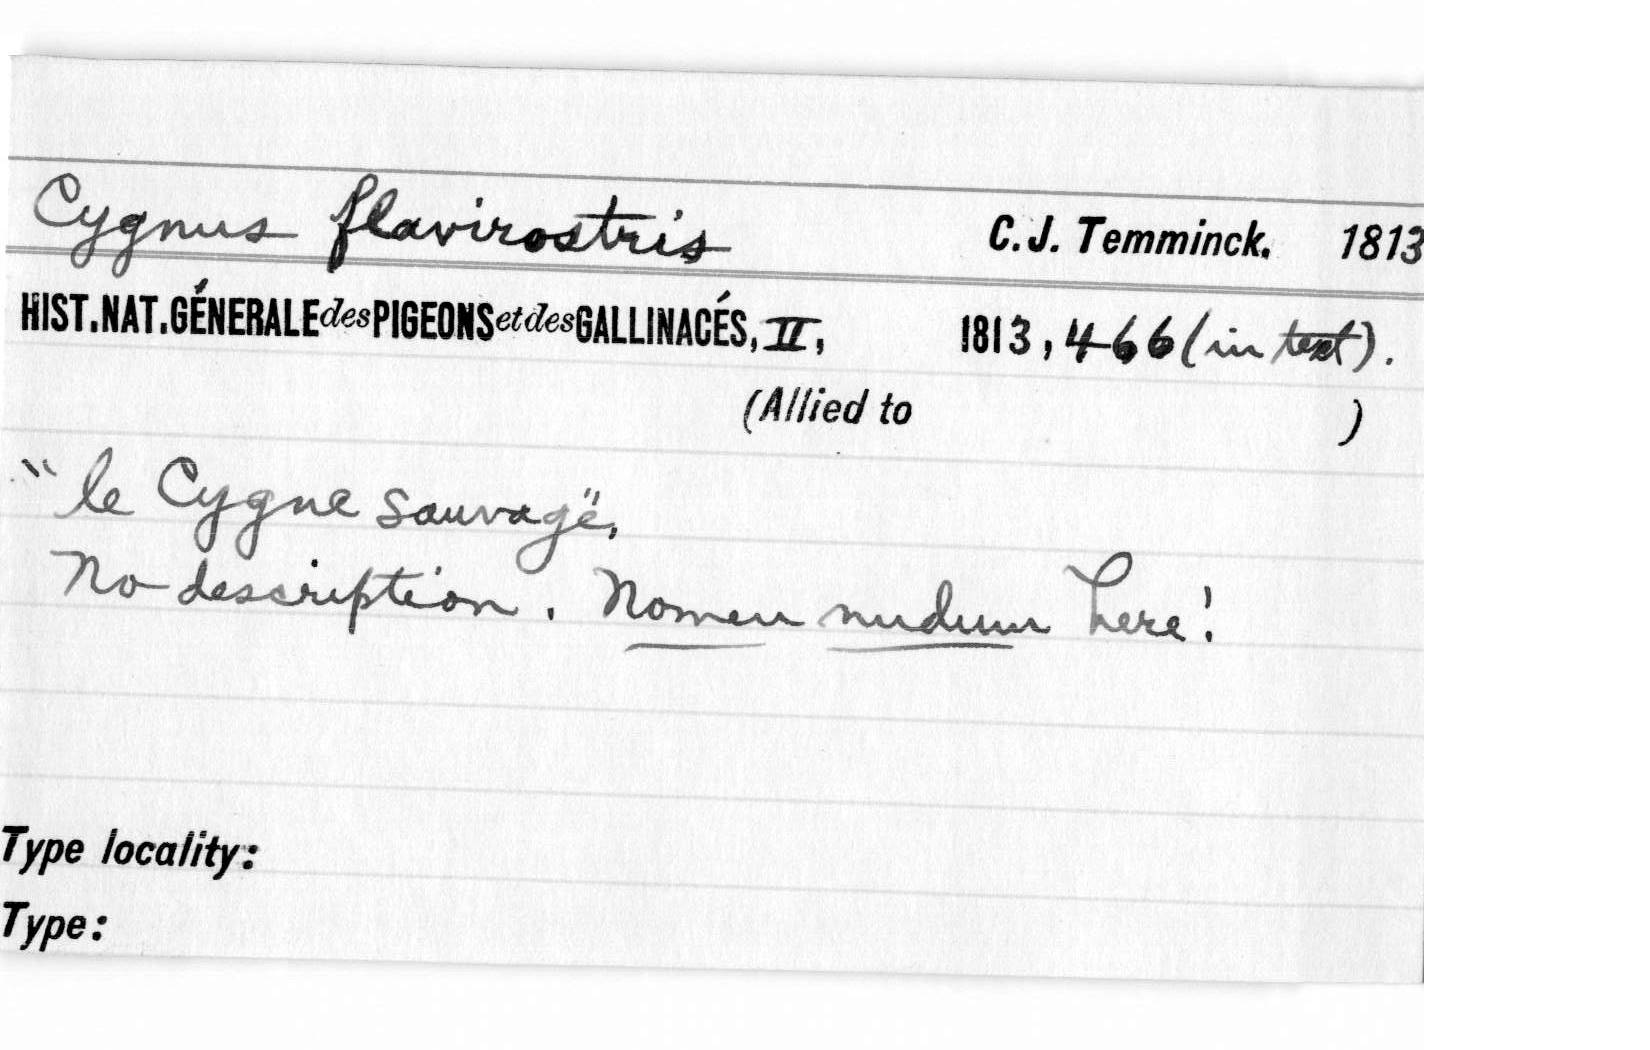 Cygnus flavirostris C.J. Temminck. 1813
HIST.NAT.GÉNERALE des PIGEONS et des GALLINACÉS, II, 1813, 466 (in text).
(Allied to )
"le Cygne sauvage",
No description. Nomen nudum here!
Type locality:
Type: